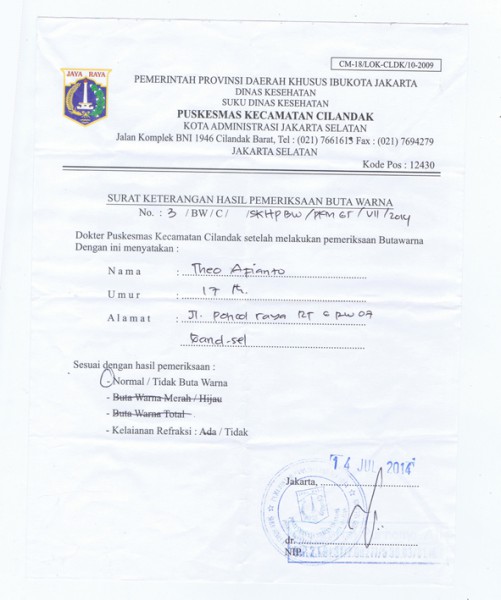 CM-18/LOK-CLDK/10-2009
JAYA RAYA
PEMERINTAH PROVINSI DAERAH KHUSUS IBUKOTA JAKARTA
DINAS KESEHATAN
SUKU DINAS KESEHATAN
PUSKESMAS KECAMATAN CILANDAK
KOTA ADMINISTRASI JAKARTA SELATAN
Jalan Komplek BNI 1946 Cilandak Barat, Tel : (021) 7661613 Fax : (021) 7694279
JAKARTA SELATAN
Kode Pos : 12430
SURAT KETERANGAN HASIL PEMERIKSAAN BUTA WARNA
No. : 3 / BW / C / /SKHPBW/PKM GT/VII/2014
Dokter Puskesmas Kecamatan Cilandak setelah melakukan pemeriksaan Butawarna
Dengan ini menyatakan :
Nama : Theo Apianto
Umur : 17 th.
Alamat : Jl. raya RT 6 RW 07
-sel
Sesuai dengan hasil pemeriksaan :
- Normal / Tidak Buta Warna
- Buta Warna Merah / Hijau
- Buta Warna Total
- Kelaianan Refraksi : Ada / Tidak
14 JUL 2014
Jakarta,
dr.
NIP.